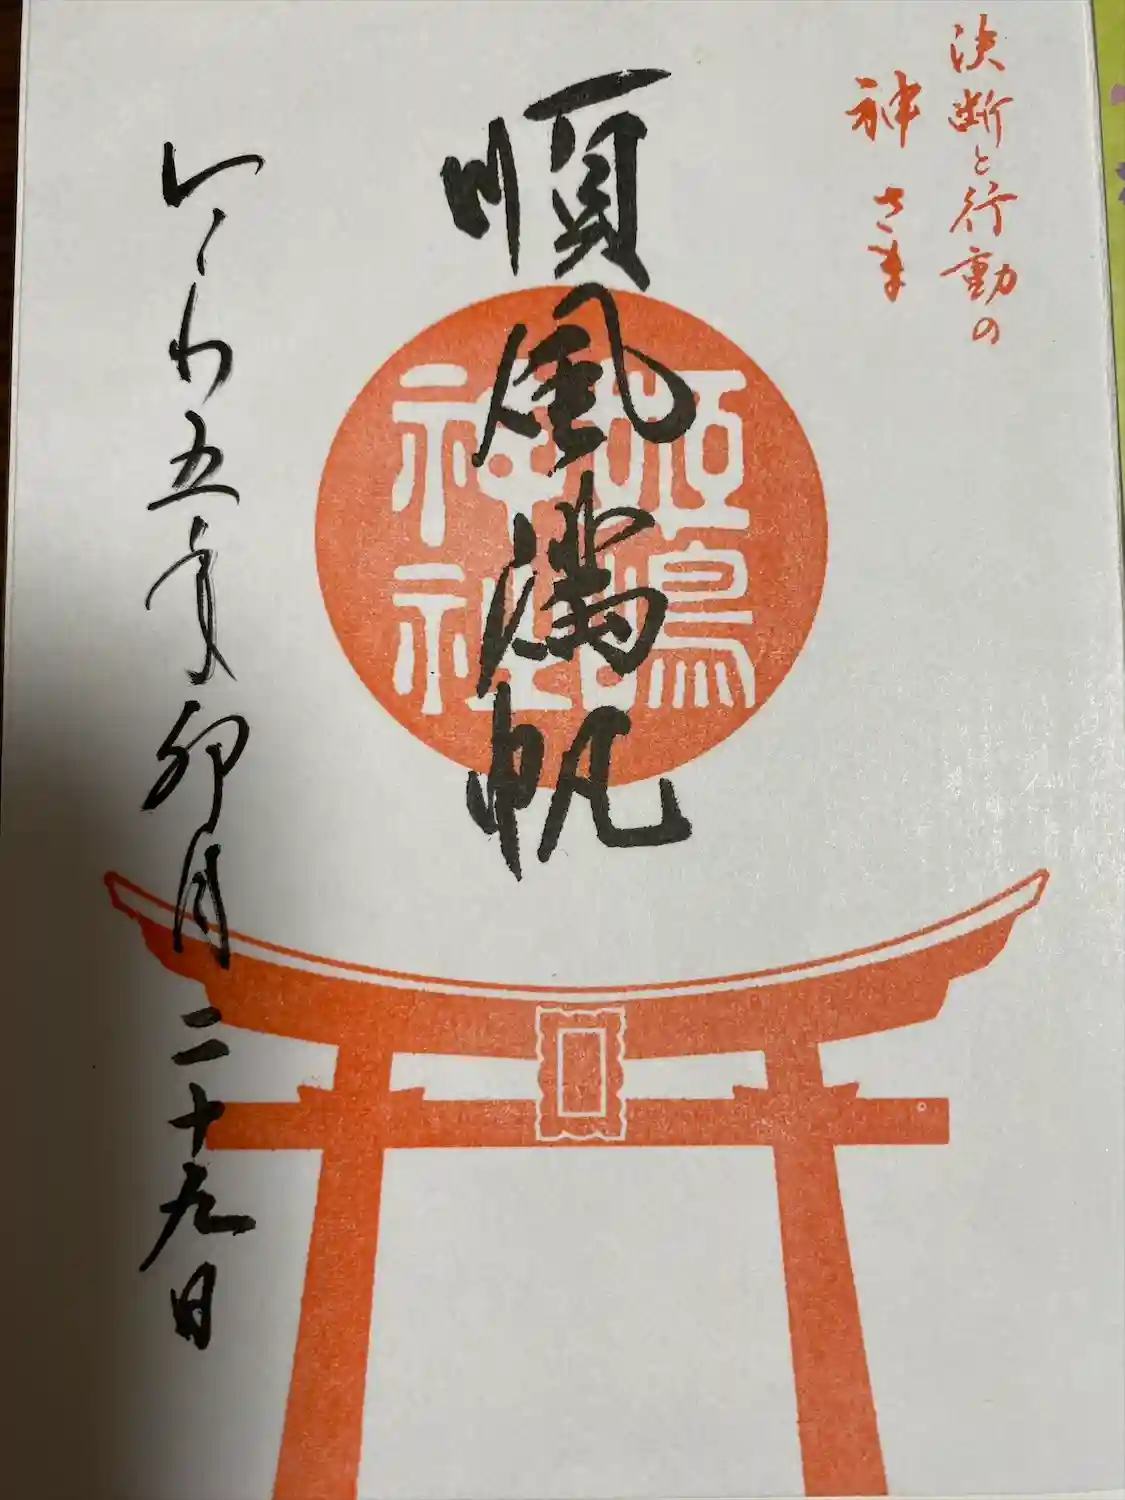 決断と行動の
神さま
順風満帆
姫嶋
神社
令和五年卯月二十九日